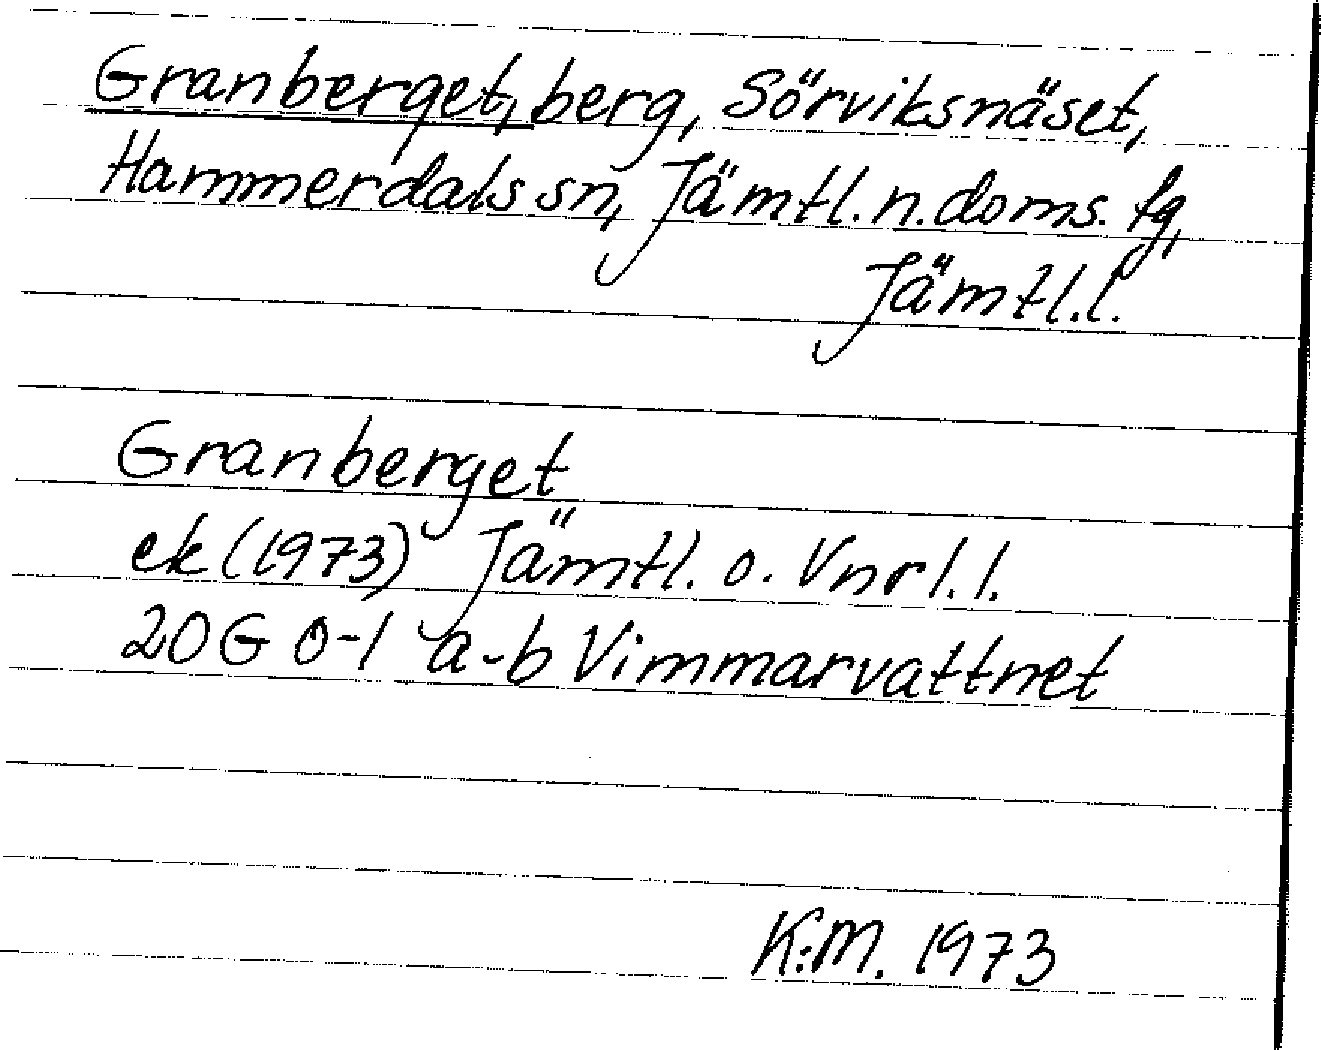 Granberget, berg, Sörviksnäset,
Hammerdals sn, Jämtl. n. doms. fg,
Jämtl. l.
Granberget
ek (1973) Jämtl. o. Vnrl. l.
20G 0-1 a-b Vimmarvattnet
K:M. 1973